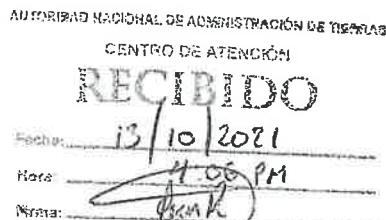 AUTORIDAD NACIONAL DE ADMINISTRACIÓN DE TIERRAS
CENTRO DE ATENCIÓN
RECIBIDO
Fecha: 13/10/2021
Hora: 4:06 PM
Firma: